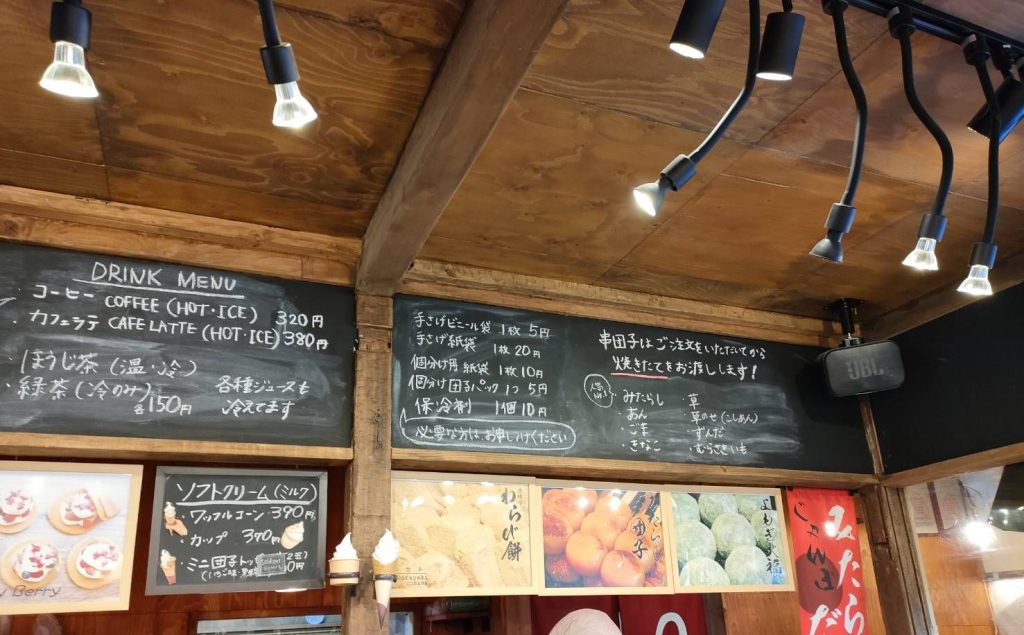 DRINK MENU
・コーヒー COFFEE (HOT・ICE) 320円
・カフェラテ CAFE LATTE (HOT・ICE) 380円
・ほうじ茶 (温・冷)
・緑茶 (冷のみ) 各150円
各種ジュースも
冷えてます
手さげビニール袋 1枚 5円
手さげ紙袋 1枚 20円
個分け用 紙袋 1枚 10円
個分け 団子パック 1つ 5円
保冷剤 1個 10円
必要な方はお申しつけください
串団子はご注文をいただいてから
焼きたてをお渡しします!
人気No.1
みたらし
・あん
・ごま
・きなこ
・草
・草のせ(こしあん)
・ずんだ
・むらさきいも
JBL
ソフトクリーム(ミルク)
・ワッフルコーン 390円
・カップ 390円
・ミニ団子
(いちご味・
わらび餅
団子
よもぎ大福
Berry
みたら